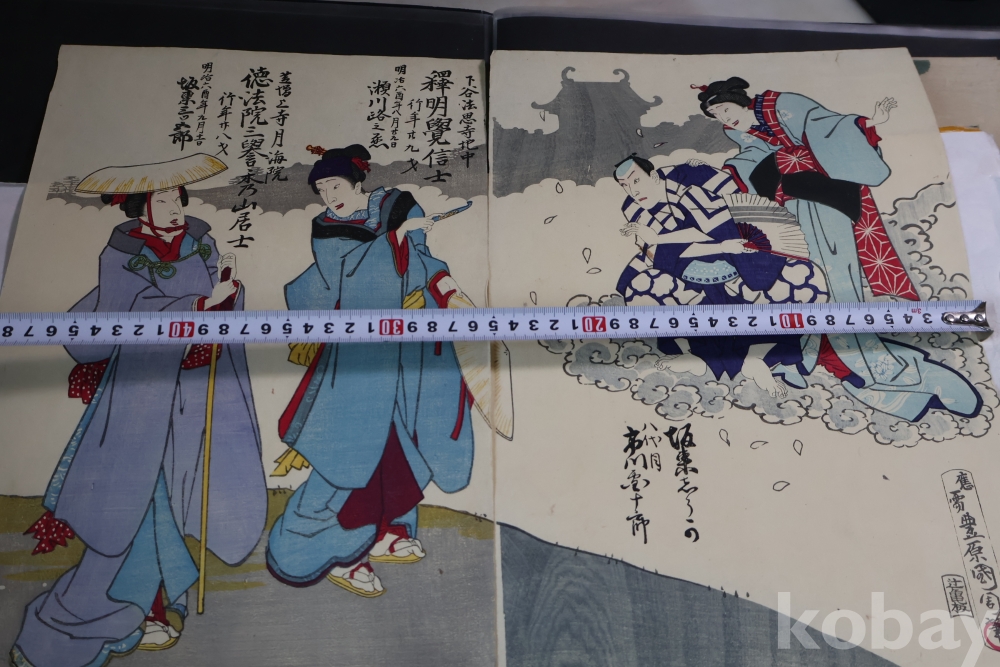 下谷法恩寺地中
釋明覺信士
行年廿九才
明治六酉年八月廿九日
瀬川路之丞
芝増上寺月海院
德法院三譽木乃山居士
行年廿八才
明治六酉年九月十一日
坂東三津五郎
坂東志うか
八代目
市川団十郎
應需豊原國周
8 7 6 5 4 3 2 1 40 9 8 7 6 5 4 3 2 1 30 9 8 7 6 5 4 3 2 1 20 9 8 7 6 5 4 3 2 1 10 9 8 7 6 5 4 3
3m
kobay